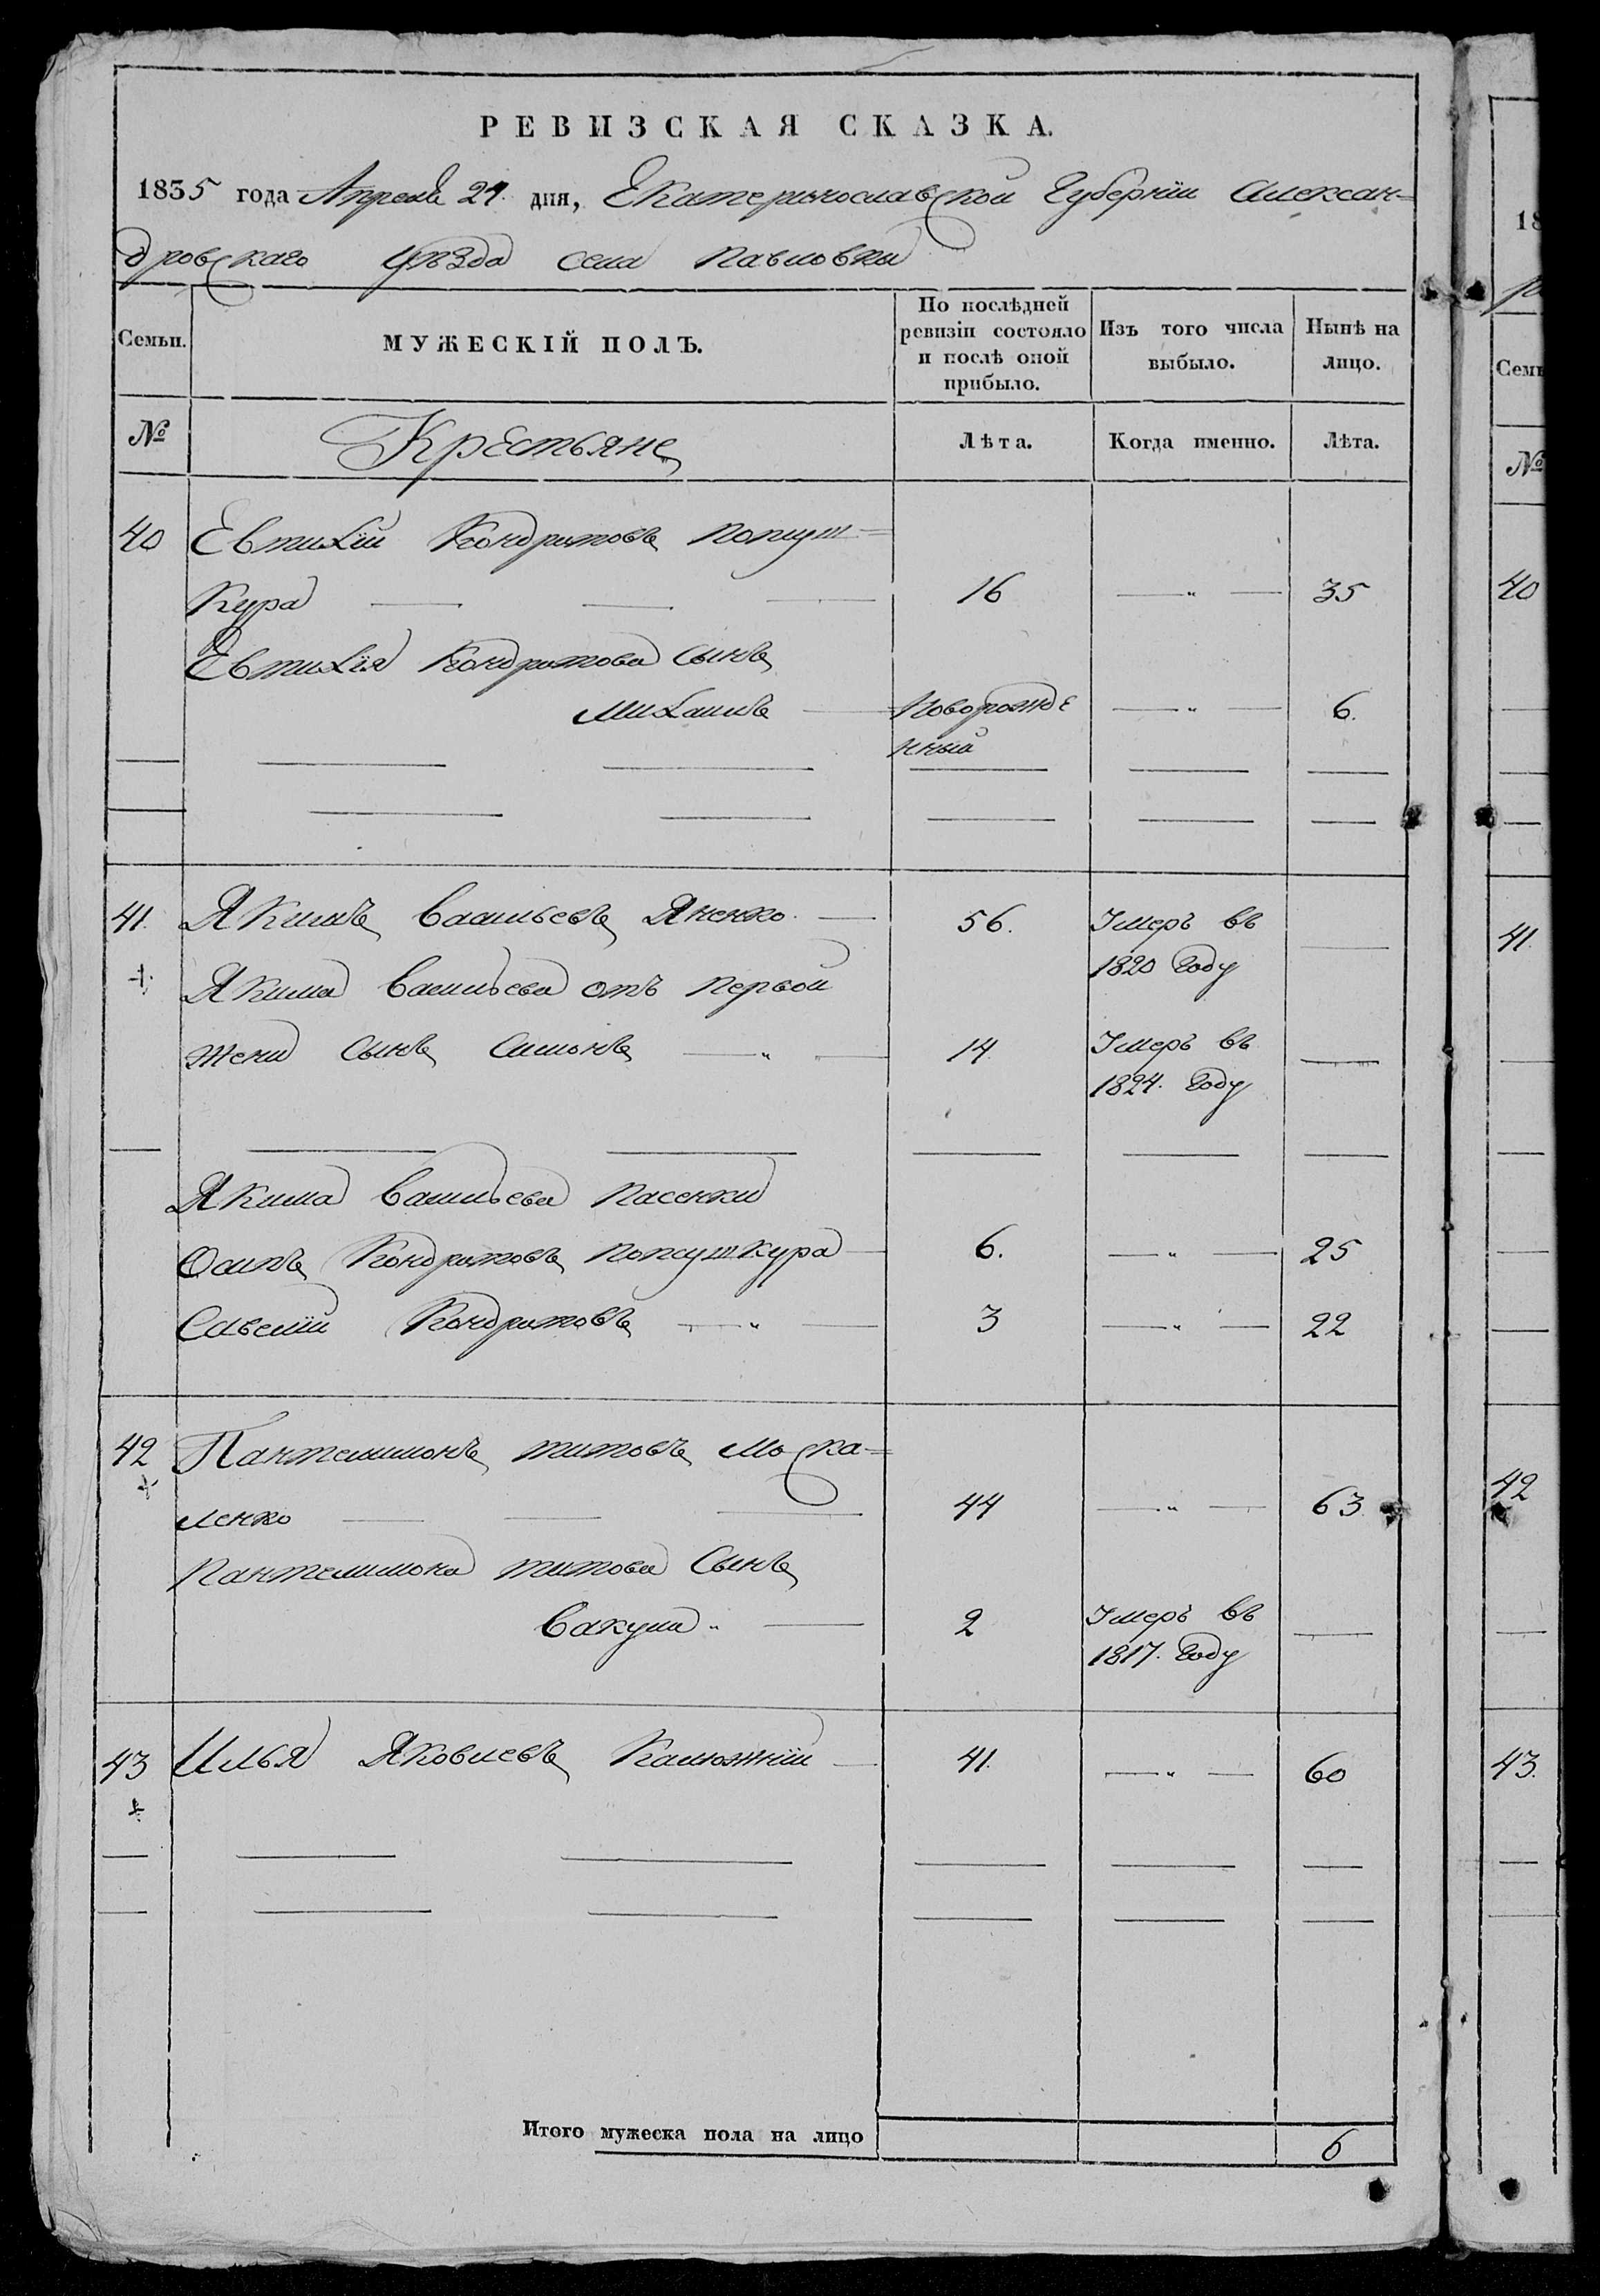 РЕВИЗСКАЯ СКАЗКА.
1835 года Апреля 24. дня, Екатеринославской Губернiи Алексан=
дровскаго уѣзда села Павловки
Семьи.
МУЖЕСКІЙ ПОЛЪ.
По послѣдней ревизіи состояло и послѣ оной прибыло.
Изъ того числа выбыло.
Нынѣ на лицо.
№ Крестьяне Лѣта. Когда именно. Лѣта.
40 Евтихiй Кондратовъ Попсуш=
Кура — — — 16 —"— 35
Евтихiя Кондратова Сынъ
Михаилъ — Новорожде —"— 6.
нный
41. Якимъ Васильевъ Яненко. — 56. Умеръ въ —
+ 1820 Году
Якима Васильева отъ первой
жени Сынъ Симонъ —"— 14 Умеръ въ —
1824. Году
Якима Васильева Пасенки
Осипъ Кондратовъ Попсушкура — 6. —"— 25
Савелiй Кондратовъ —"— 3 —"— 22
42 Пантелимонъ Титовъ Моска=
+ ленко — — — 44 —"— 63.
Пантелимона Титова Сынъ
Вакула " — 2 Умеръ въ —
1817. Году
43 Илья Яковлевъ Калюжнiй — 41. —"— 60
+
Итого мужеска пола на лицо 6
18
Семь
№
40
41.
42
43.